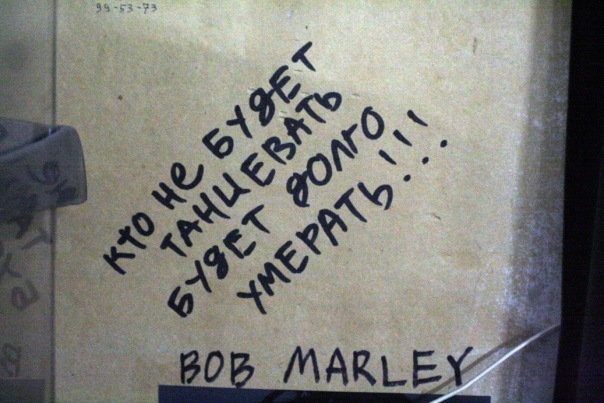 99-53-73
КТО НЕ БУДЕТ
ТАНЦЕВАТЬ
БУДЕТ ДОЛГО
УМЕРАТЬ!!!
BOB MARLEY